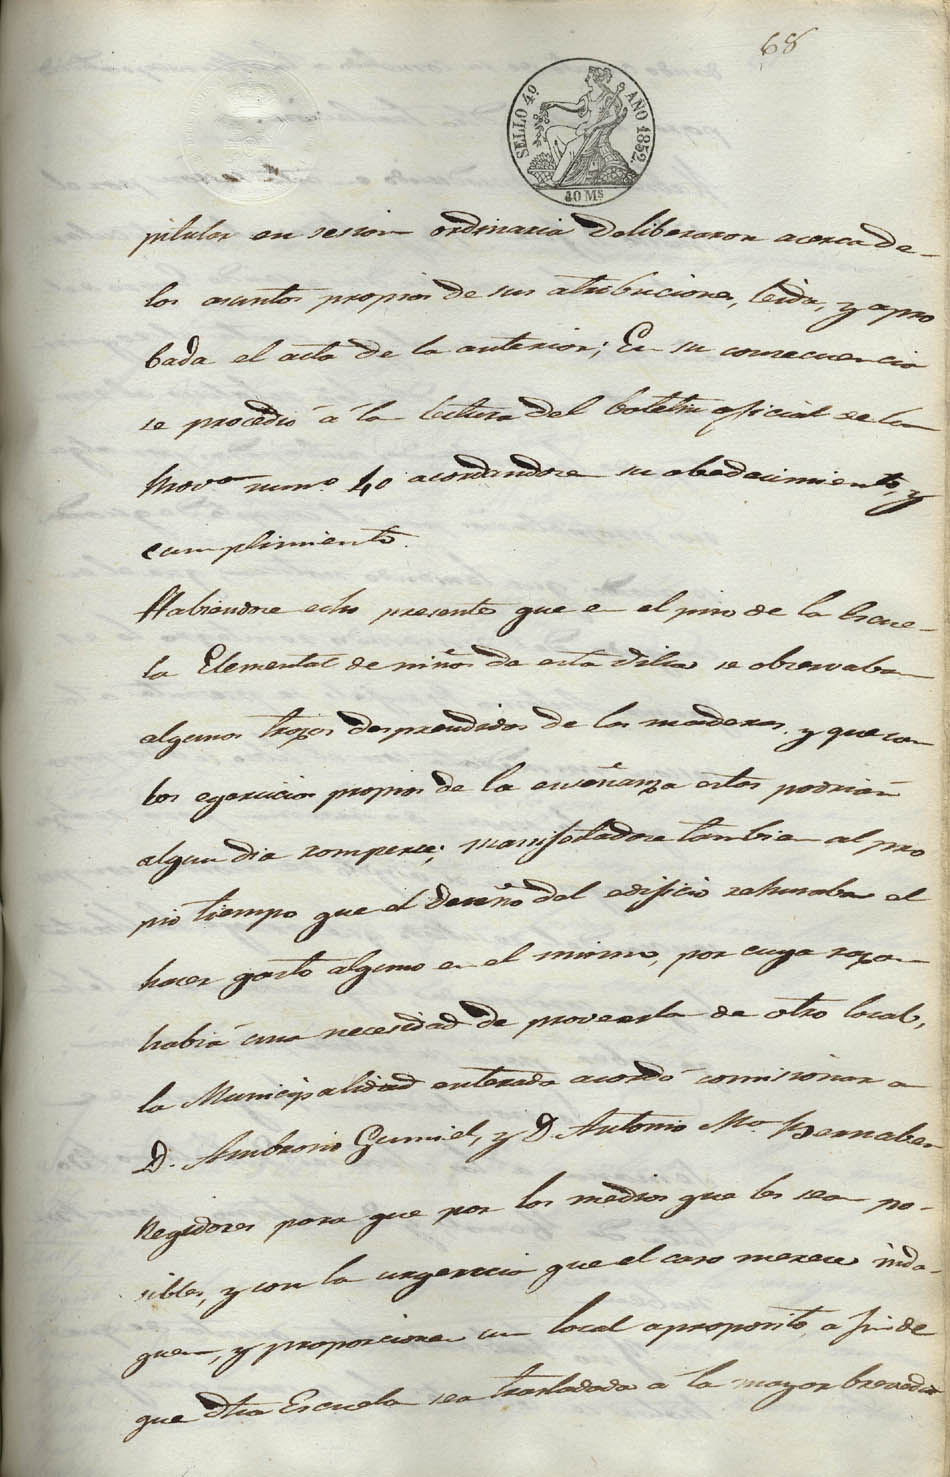 68
SELLO 4º AÑO 1852.
40 Ms
pitular en sesion ordinaria deliberaron acerca de
los asuntos propios de sus atribuciones, leida, y apro
bada el acta de la anterior; En su consecuencia
se procedió á la lectura del boletin oficial de la
Provª numº 40 acordandose su obedecimiento, y
cumplimiento.
Habiendose echo presente que en el piso de la Escue-
la Elemental de niños de esta Villa se observaban
algunos trozos desprendidos de las maderas, y que con
los egercicios propios de la enseñanza estos podrian
algun dia romperse; manifestadose tambien al pro
pio tiempo que el dueño del edificio rehusaba el
hacer gasto alguno en el mismo, por cuya razon
habia una necesidad de proveerla de otro local,
la Municipalidad enterada acordó comisionar a
D. Ambrosio Gumiel, y D. Antonio Mª Bernabeu
Regidores para que por los medios que les sean po-
sibles, y con la urgencia que el caso merece inda-
guen, y proporcionen un local aproposito, a fin de
que dha Escuela sea trasladada a la mayor brevedad